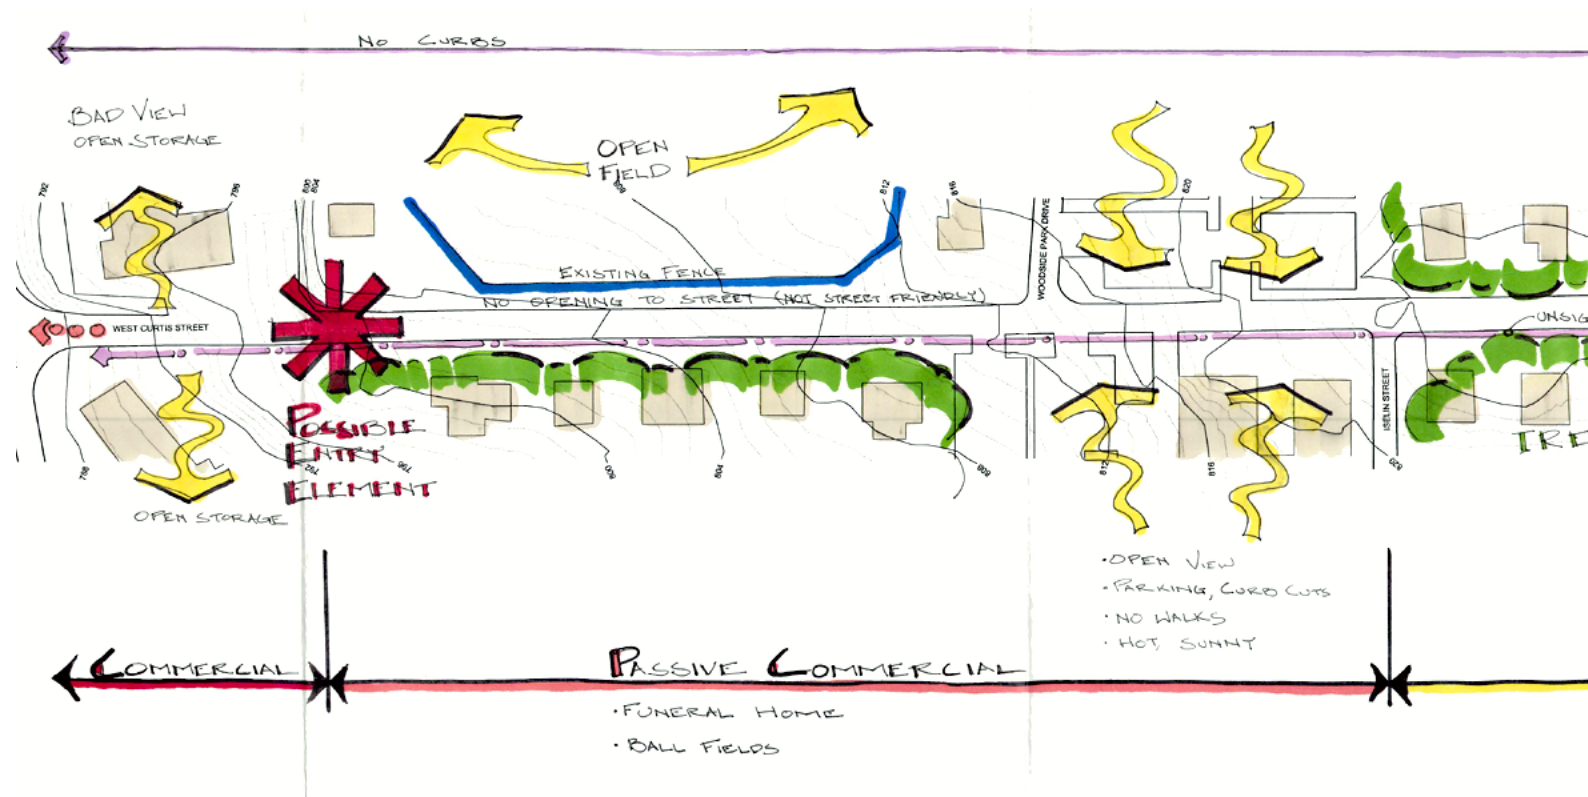 NO CURBS
BAD VIEW
OPEN STORAGE
OPEN
FIELD
792
796
800
804
808
812
816
820
WOODSIDE PARK DRIVE
EXISTING FENCE
NO OPENING TO STREET (NOT STREET FRIENDLY)
WEST CURTIS STREET
UNSIG
ISELIN STREET
POSSIBLE
ENTRY
ELEMENT
788
792
796
800
804
808
812
816
820
TRE
OPEN STORAGE
• OPEN VIEW
• PARKING, CURB CUTS
• NO WALKS
• HOT, SUNNY
COMMERCIAL
PASSIVE COMMERCIAL
• FUNERAL HOME
• BALL FIELDS